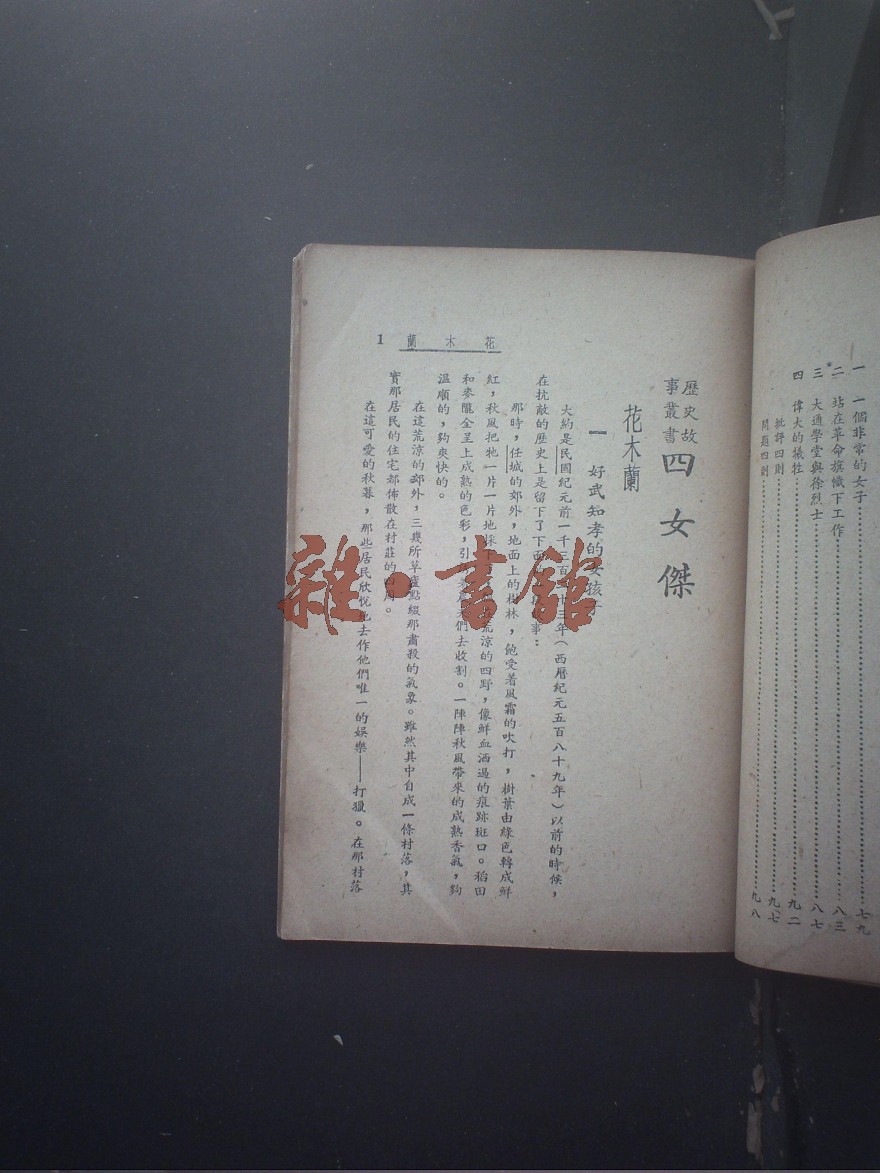 一 一個非常的女子 七九
二 站在革命旗幟下工作 八三
三 大通學堂與徐烈士 八七
四 偉大的犧牲 九二
批評四則 九七
問題四則 九八
歷史故
事叢書
四女傑
花木蘭
一 好武知孝的女孩子
大約是民國紀元前一千三百 十三年(西曆紀元五百八十九年)以前的時候，
在抗敵的歷史上是留下了下面 事：
那時，任城的郊外，地面上的樹林，飽受着風霜的吹打，樹葉由綠色轉成鮮
紅，秋風把牠一片一片地 荒涼的四野，像鮮血洒過的痕跡斑口。稻田
和麥隴全呈上成熟的色彩，引 們去收割。一陣陣秋風帶來的成熟香氣，夠
溫 的，夠爽快的。
在這荒涼的郊外，三幾所草廬點綴那肅殺的氣象。雖然其中自成一條村落，其
實那居民的住宅都佈散在村莊的四周。
在這可愛的秋暮，那些居民欣悅地去作他們唯一的娛樂——打獵。在那村落
花木蘭 1
雜·書館